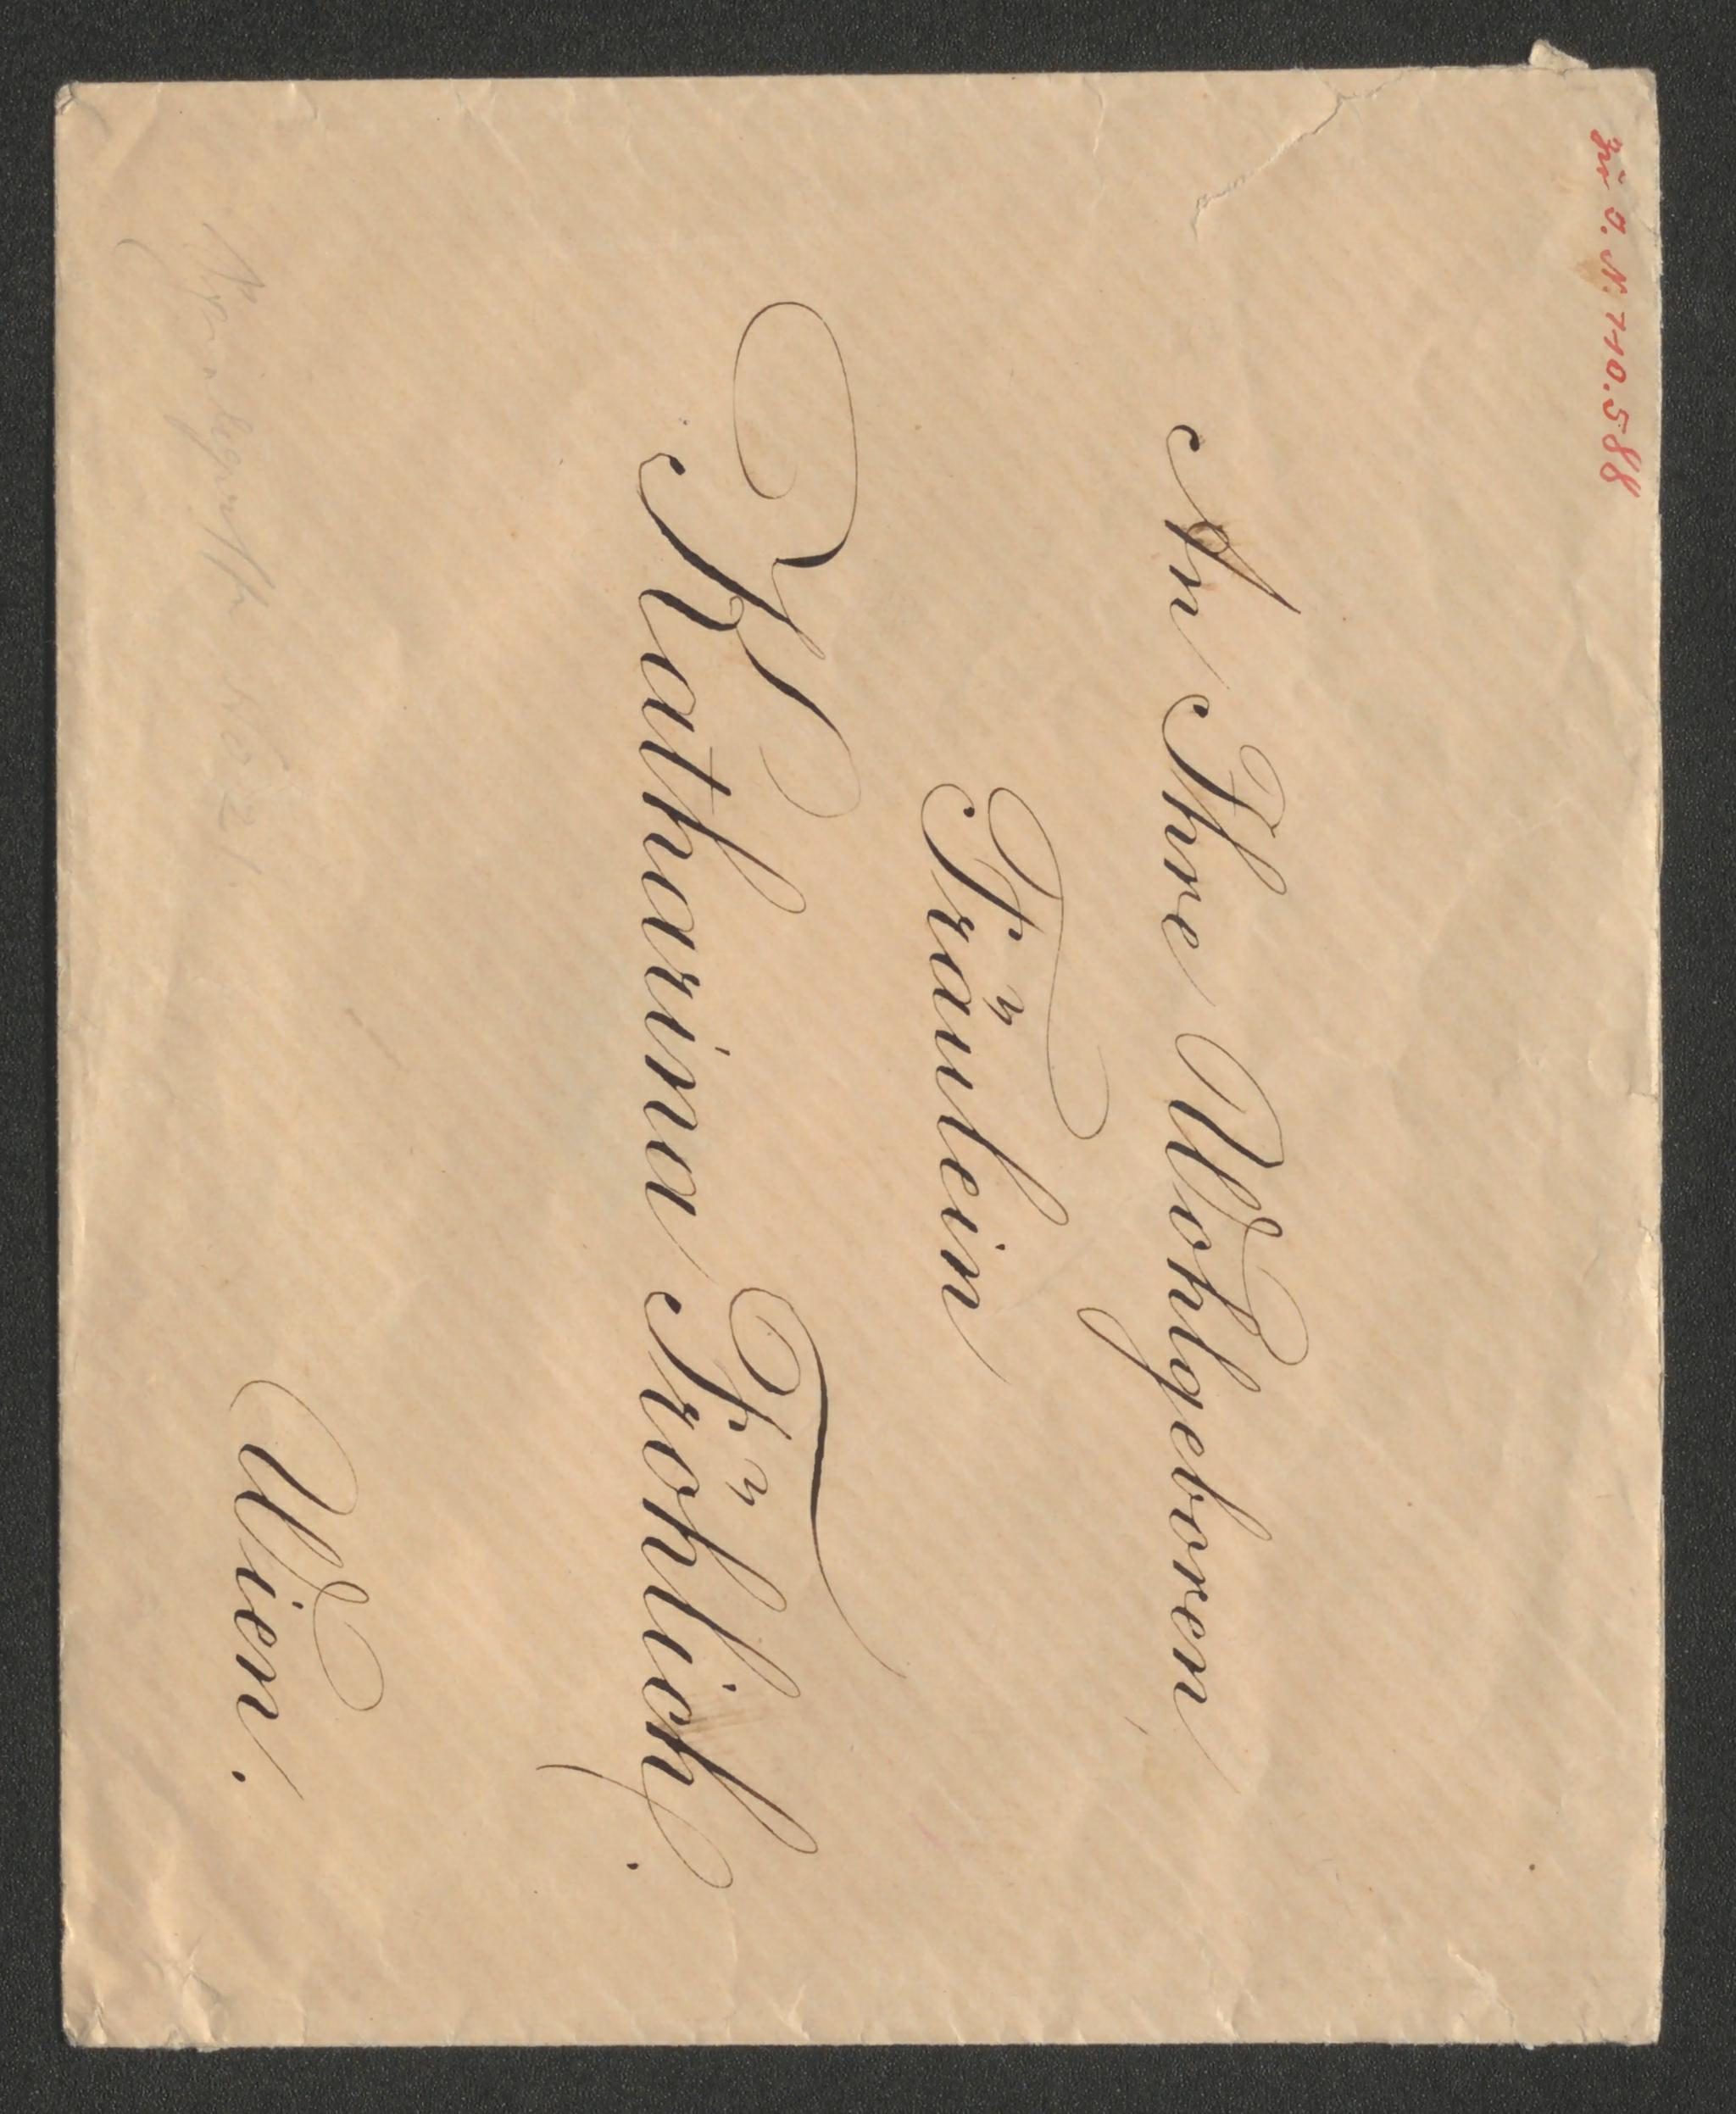 zu J. N. 110.588
An Ihre Wohlgeboren
Fräulein
Katharina Fröhlich.
Wien.